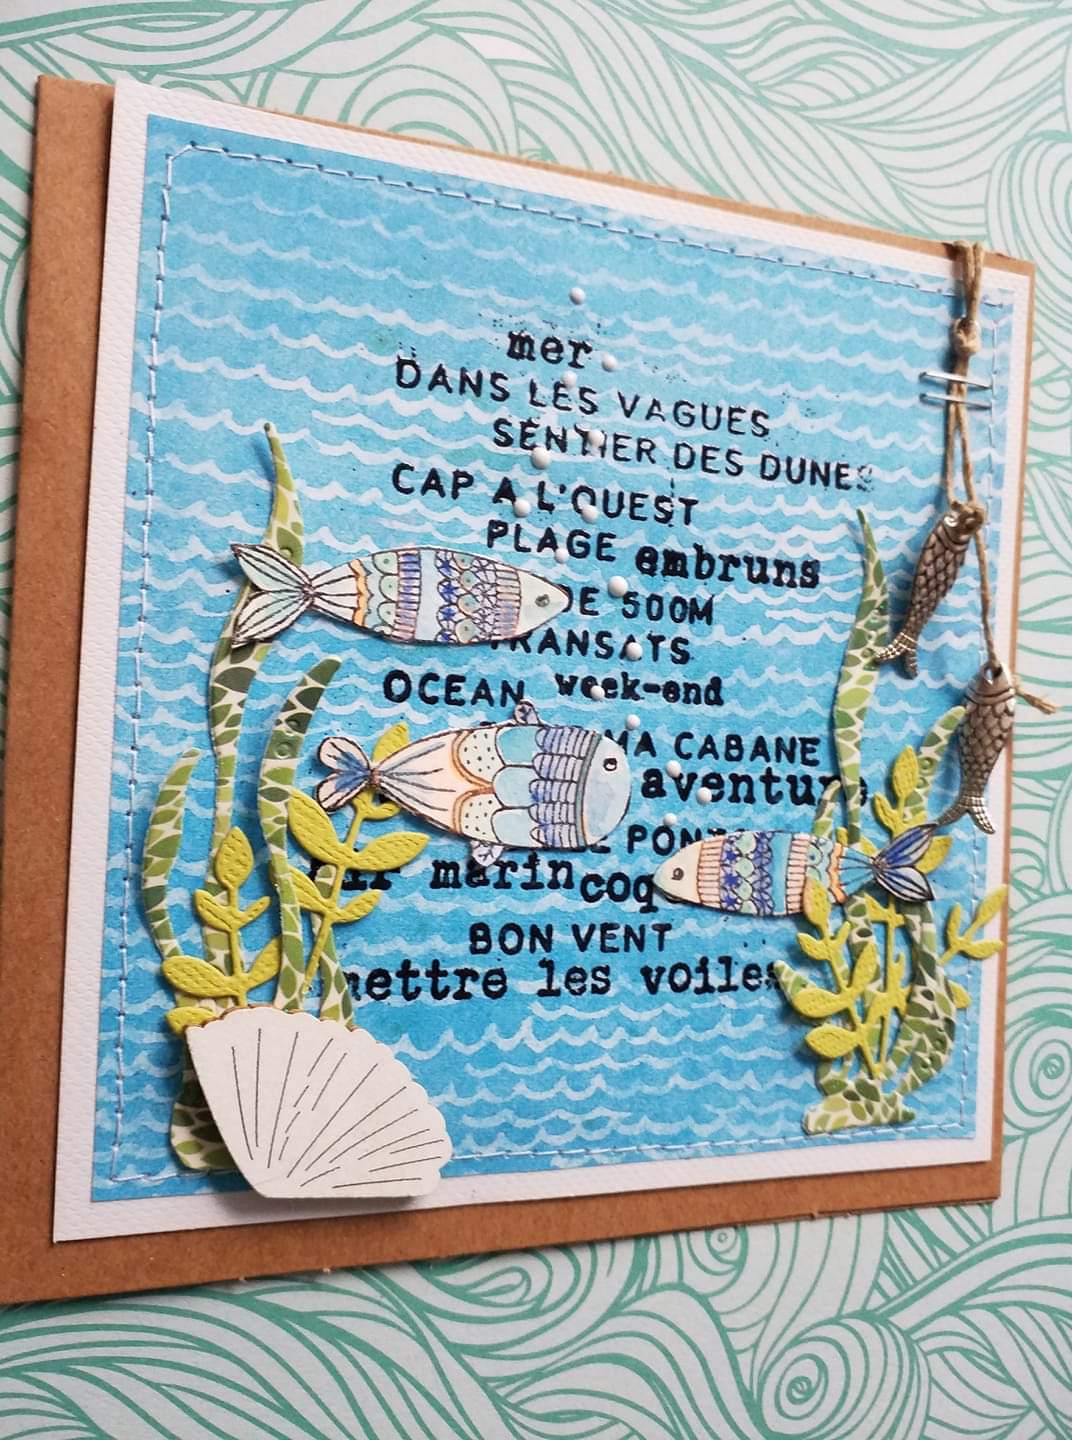 mer
DANS LES VAGUES
SENTIER DES DUNES
CAP A L'OUEST
PLAGE embruns
DE 500M
TRANSATS
OCEAN week-end
MA CABANE
aventure
LE
marin coq
BON VENT
mettre les voiles